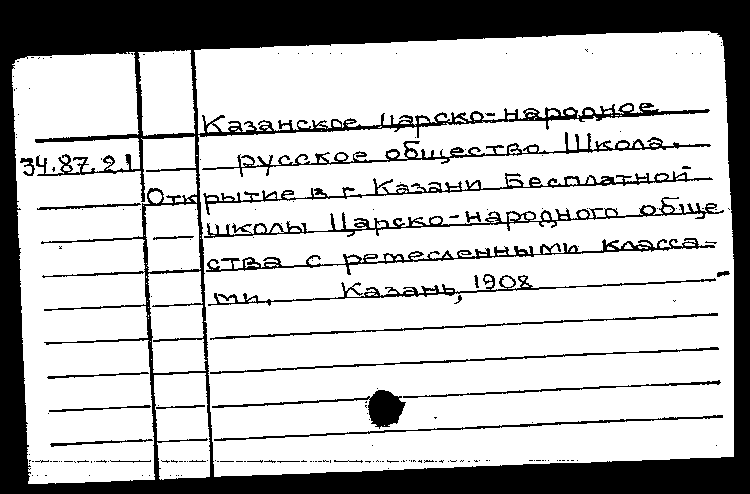 Казанское царско-народное
34.87.2.1 русское общество. Школа.
Открытие в г. Казани Бесплатной
школы Царско-народного обще
ства с ремесленными класса-
ми. Казань, 1908